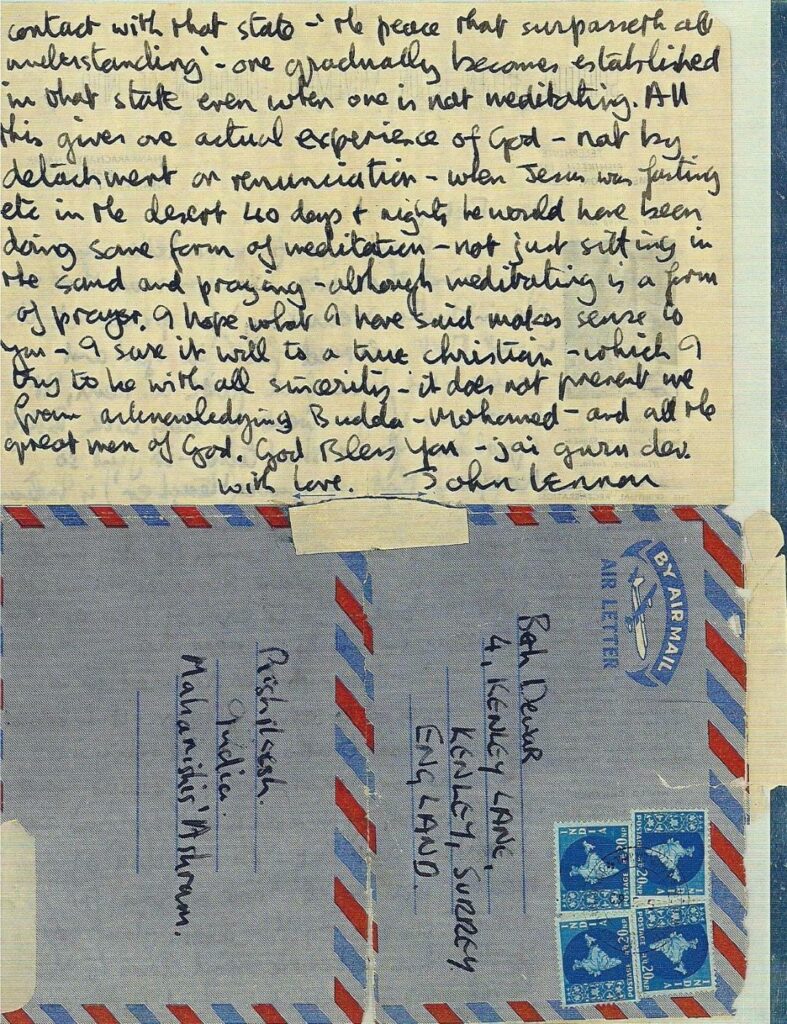 contact with that state - 'the peace that surpasseth all
understanding' - one gradually becomes established
in that state even when one is not meditating. All
this gives one actual experience of God - not by
detachment or renunciation - when Jesus was fasting
etc in the desert 40 days & nights he would have been
doing some form of meditation - not just sitting in
the sand and praying - although meditating is a form
of prayer. I hope what I have said makes sense to
you - I sure it will to a true christian - which I
try to be with all sincerity - it does not prevent me
from acknowledging Budda - Mohamed - and all the
great men of God. God Bless You - jai guru dev.
with love. John Lennon
BY AIR MAIL
AIR LETTER
Beth Dewar
4, KENLEY LANE,
KENLEY, SURREY
ENGLAND.
Rishikesh.
India.
Maharishis' Ashram.
INDIA
POSTAGE
20NP
INDIA
POSTAGE
20NP
INDIA
POSTAGE
20NP
INDIA
POSTAGE
20NP